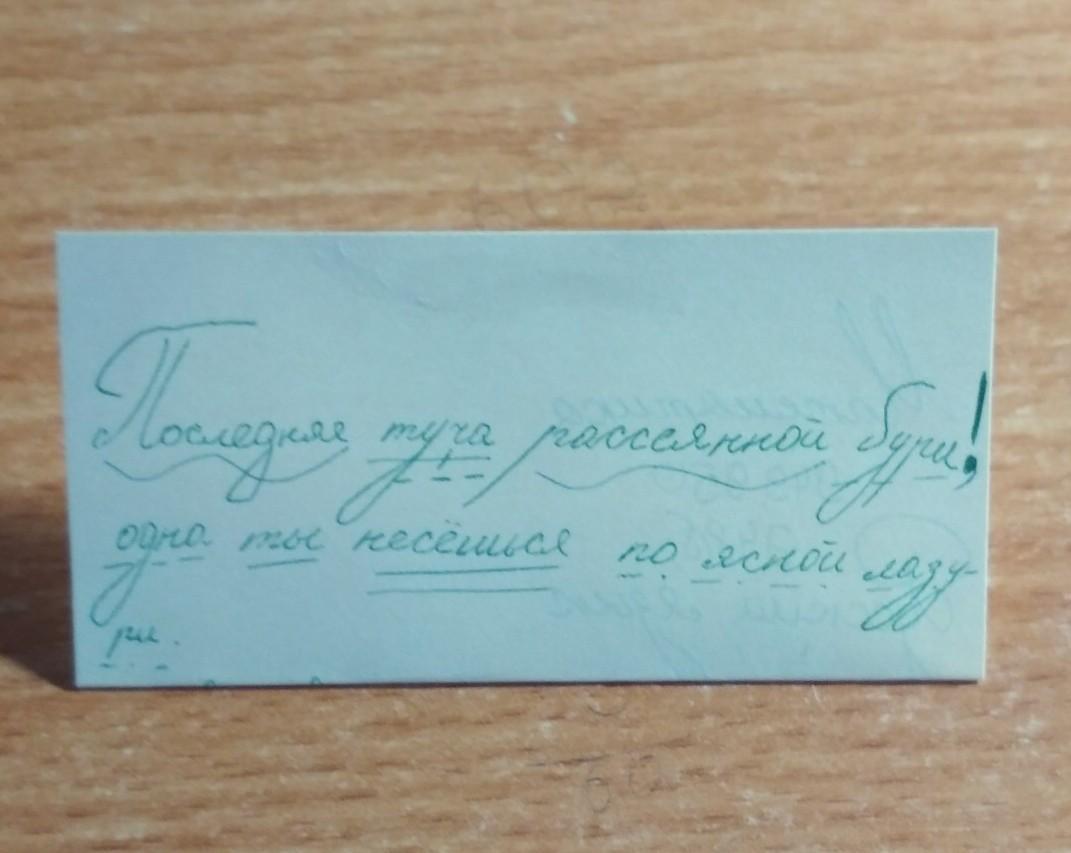 Последняя туча рассеянной бури!
одна ты несёшься по ясной лазу-
ри.